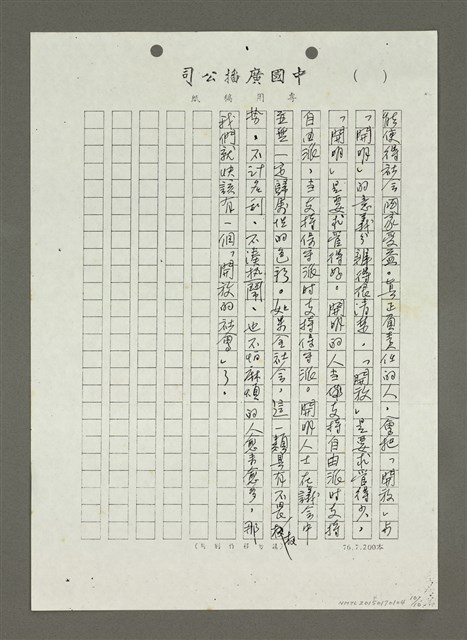 中國廣播公司
( )
專用稿紙
能使得社會國家受益。真正負責任的人，會把「開放」與
「開明」的意義分辨得很清楚，「開放」是要求管得少，
「開明」是要求管得好。開明的人當你支持自由派時支持
自由派，當支持保守派時支持保守派。開明人士在議會中
並無一定歸屬性的色彩。如果全社會，這一類具有不畏權
勢，不計名利、不湊熱鬧、也不怕麻煩的人愈來愈多，那
我們就快該有一個「開放的社會」了。
76.7.200本